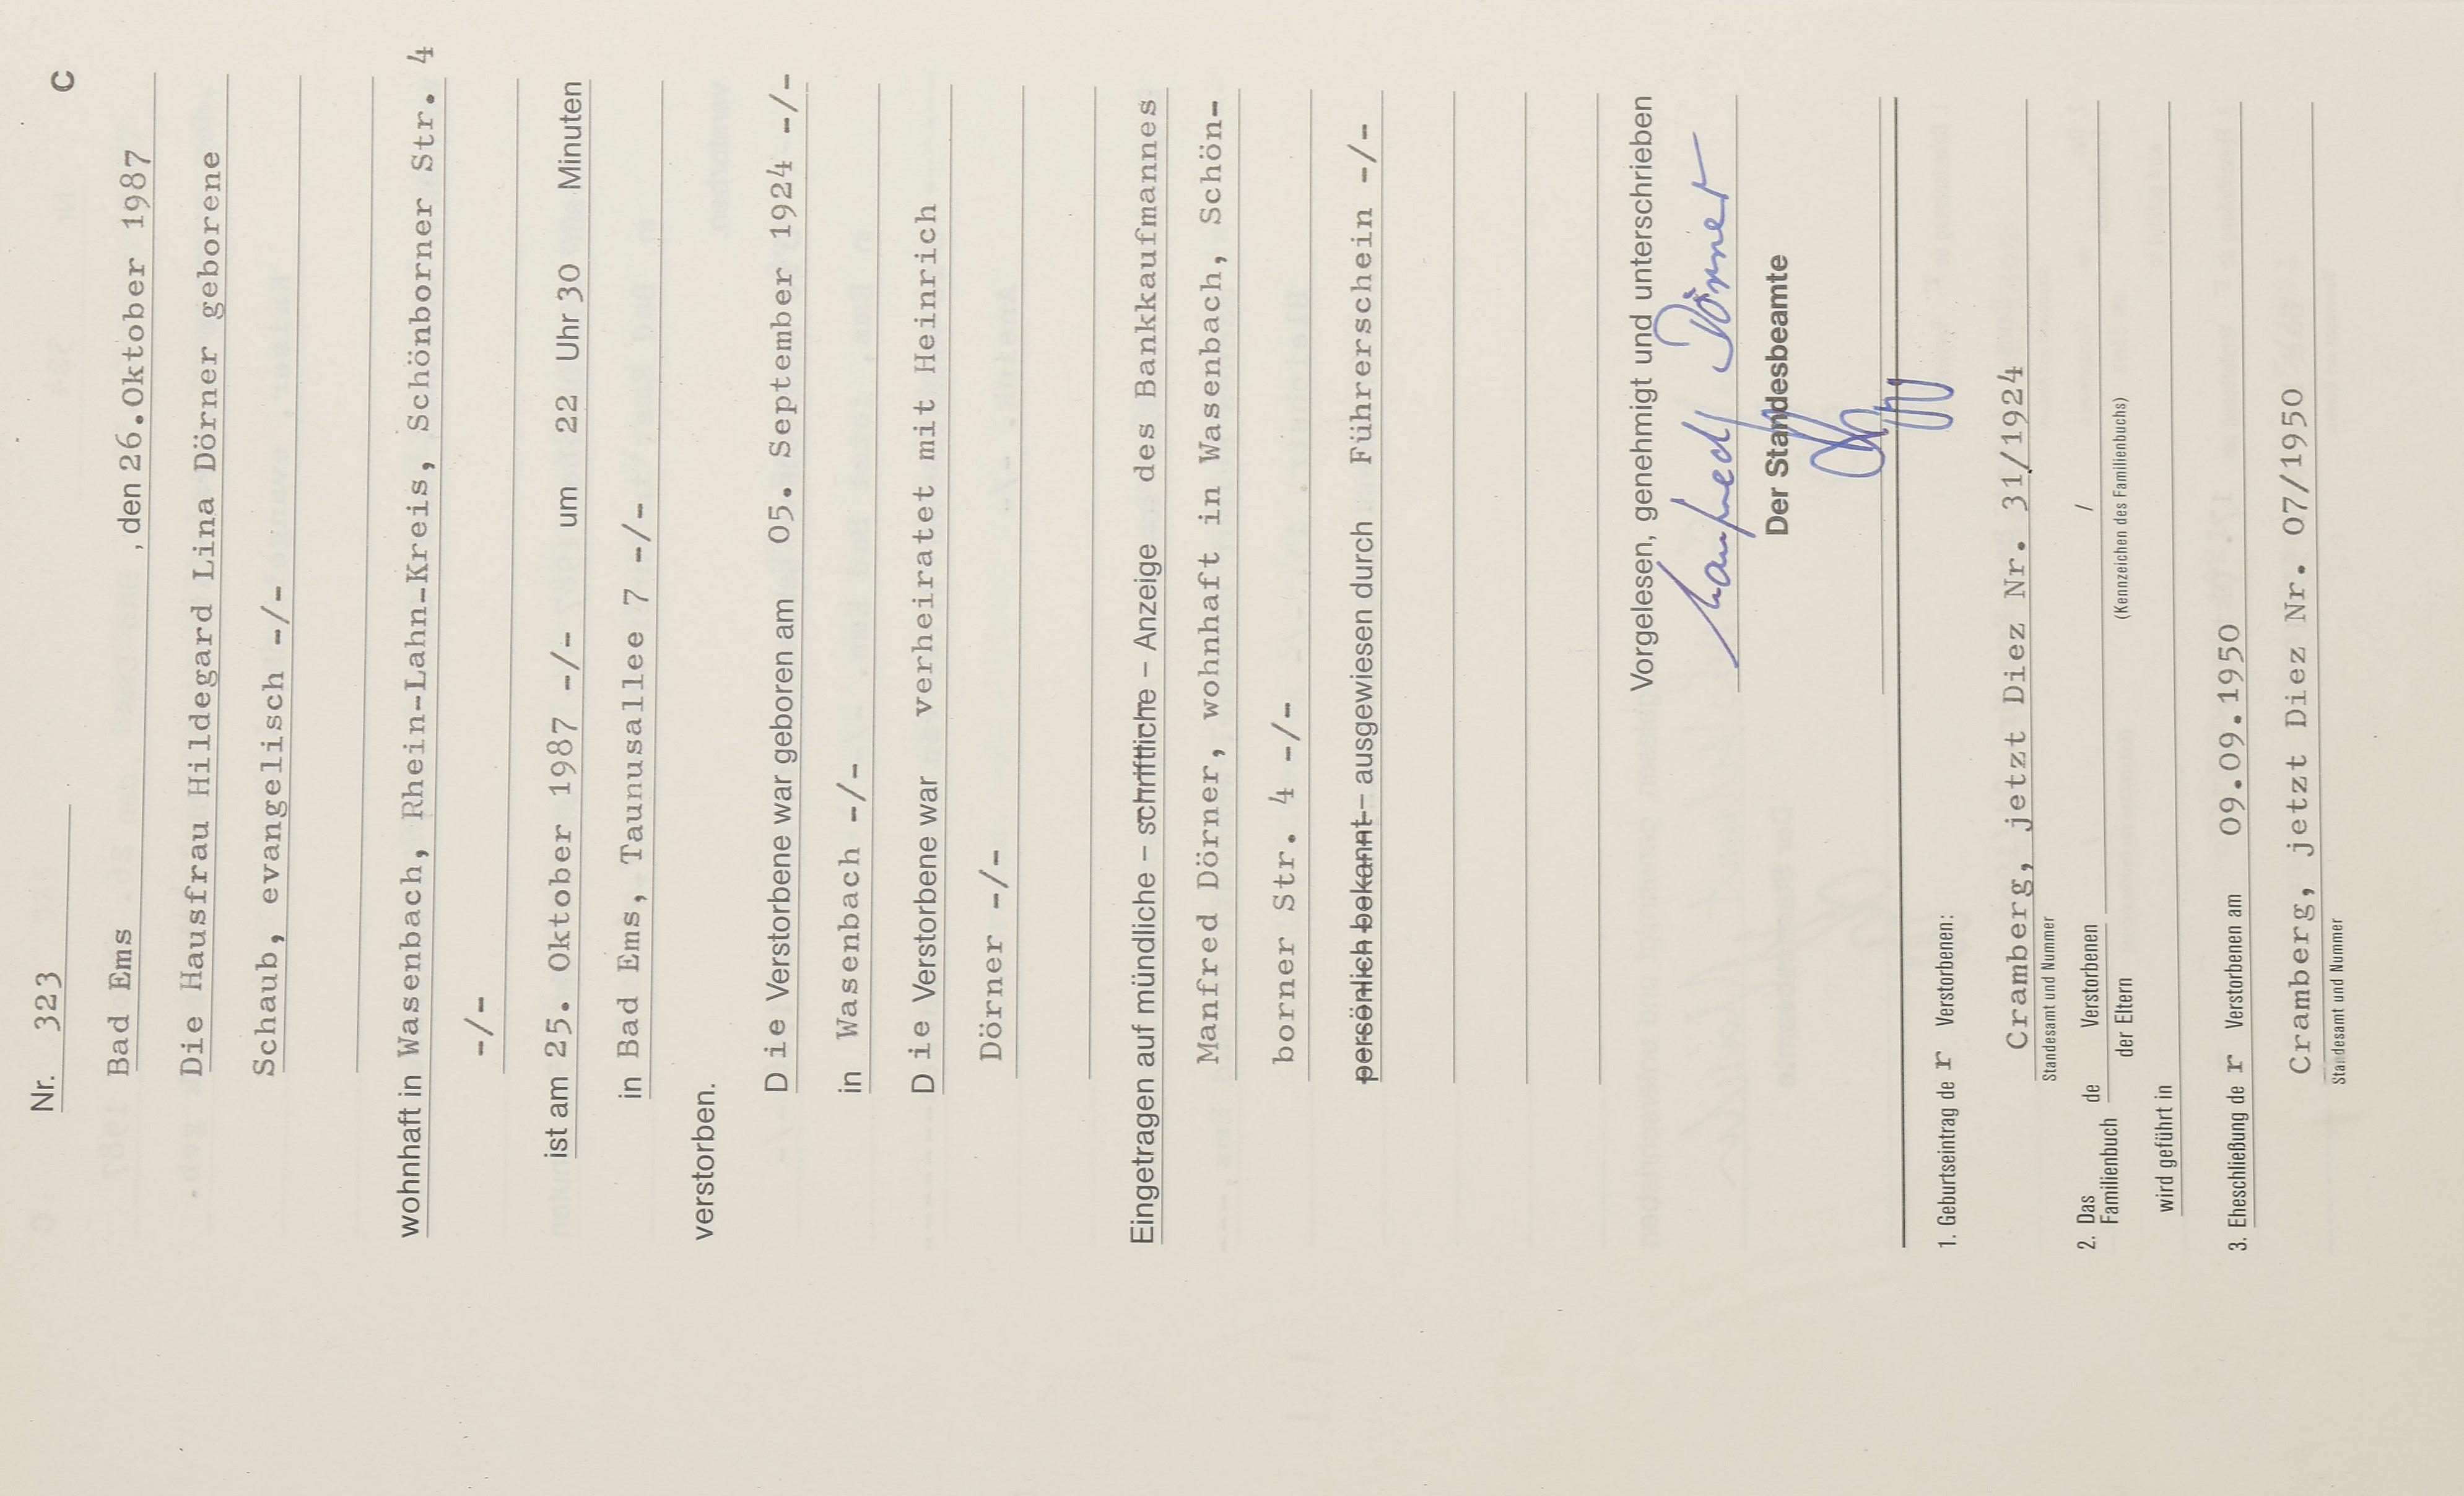 C
Nr. 323
Bad Ems , den 26.Oktober 1987
Die Hausfrau Hildegard Lina Dörner geborene
Schaub, evangelisch -/-
wohnhaft in Wasenbach, Rhein-Lahn-Kreis, Schönborner Str. 4
-/-
ist am 25. Oktober 1987 -/- um 22 Uhr 30 Minuten
in Bad Ems, Taunusallee 7 -/-
verstorben.
D ie Verstorbene war geboren am 05. September 1924 -/-
in Wasenbach -/-
D ie Verstorbene war verheiratet mit Heinrich
Dörner -/-
Eingetragen auf mündliche – schriftliche – Anzeige des Bankkaufmannes
Manfred Dörner, wohnhaft in Wasenbach, Schön-
borner Str. 4 -/-
persönlich bekannt – ausgewiesen durch Führerschein -/-
Vorgelesen, genehmigt und unterschrieben
Manfred Dörner
Der Standesbeamte
1. Geburtseintrag de r Verstorbenen:
Cramberg, jetzt Diez Nr. 31/1924
Standesamt und Nummer
2. Das Familienbuch de Verstorbenen /
der Eltern (Kennzeichen des Familienbuchs)
wird geführt in
3. Eheschließung de r Verstorbenen am 09.09.1950
Cramberg, jetzt Diez Nr. 07/1950
Standesamt und Nummer